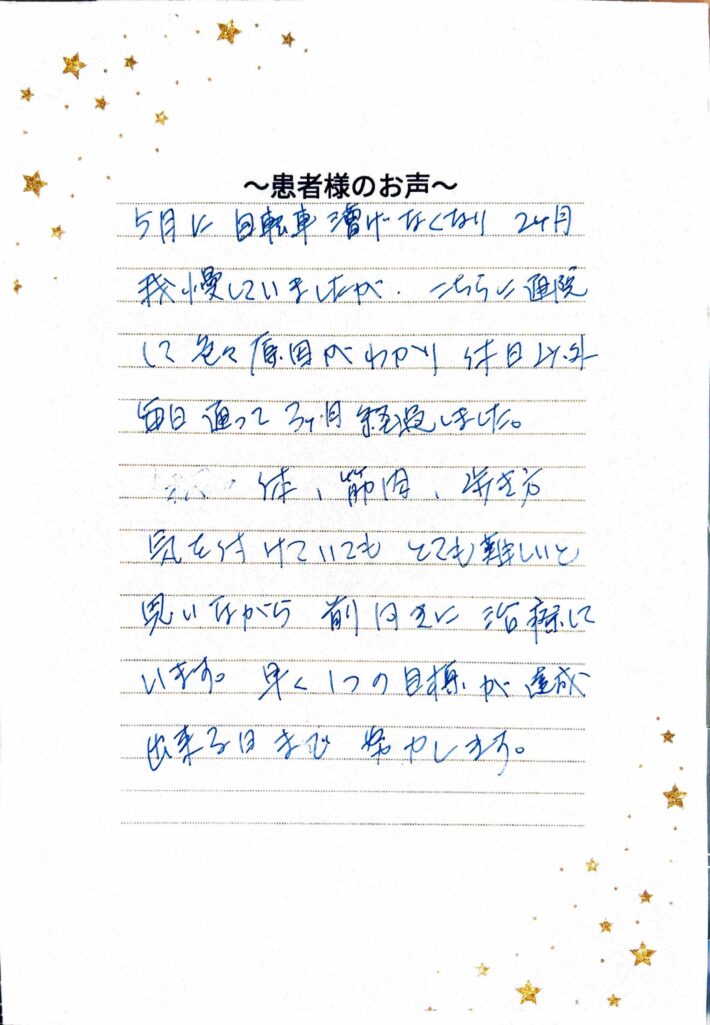 ～患者様のお声～
5月に自転車漕げなくなり 2ヶ月
我慢していましたが、こちらに通院
して色々原因がわかり 休日以外
毎日通って 3ヶ月経過しました。
体、筋肉、歩き方
気を付けていても とても難しいと
思いながら 前向きに 治療して
います。早く1つの目標が達成
出来る日まで 努力します。